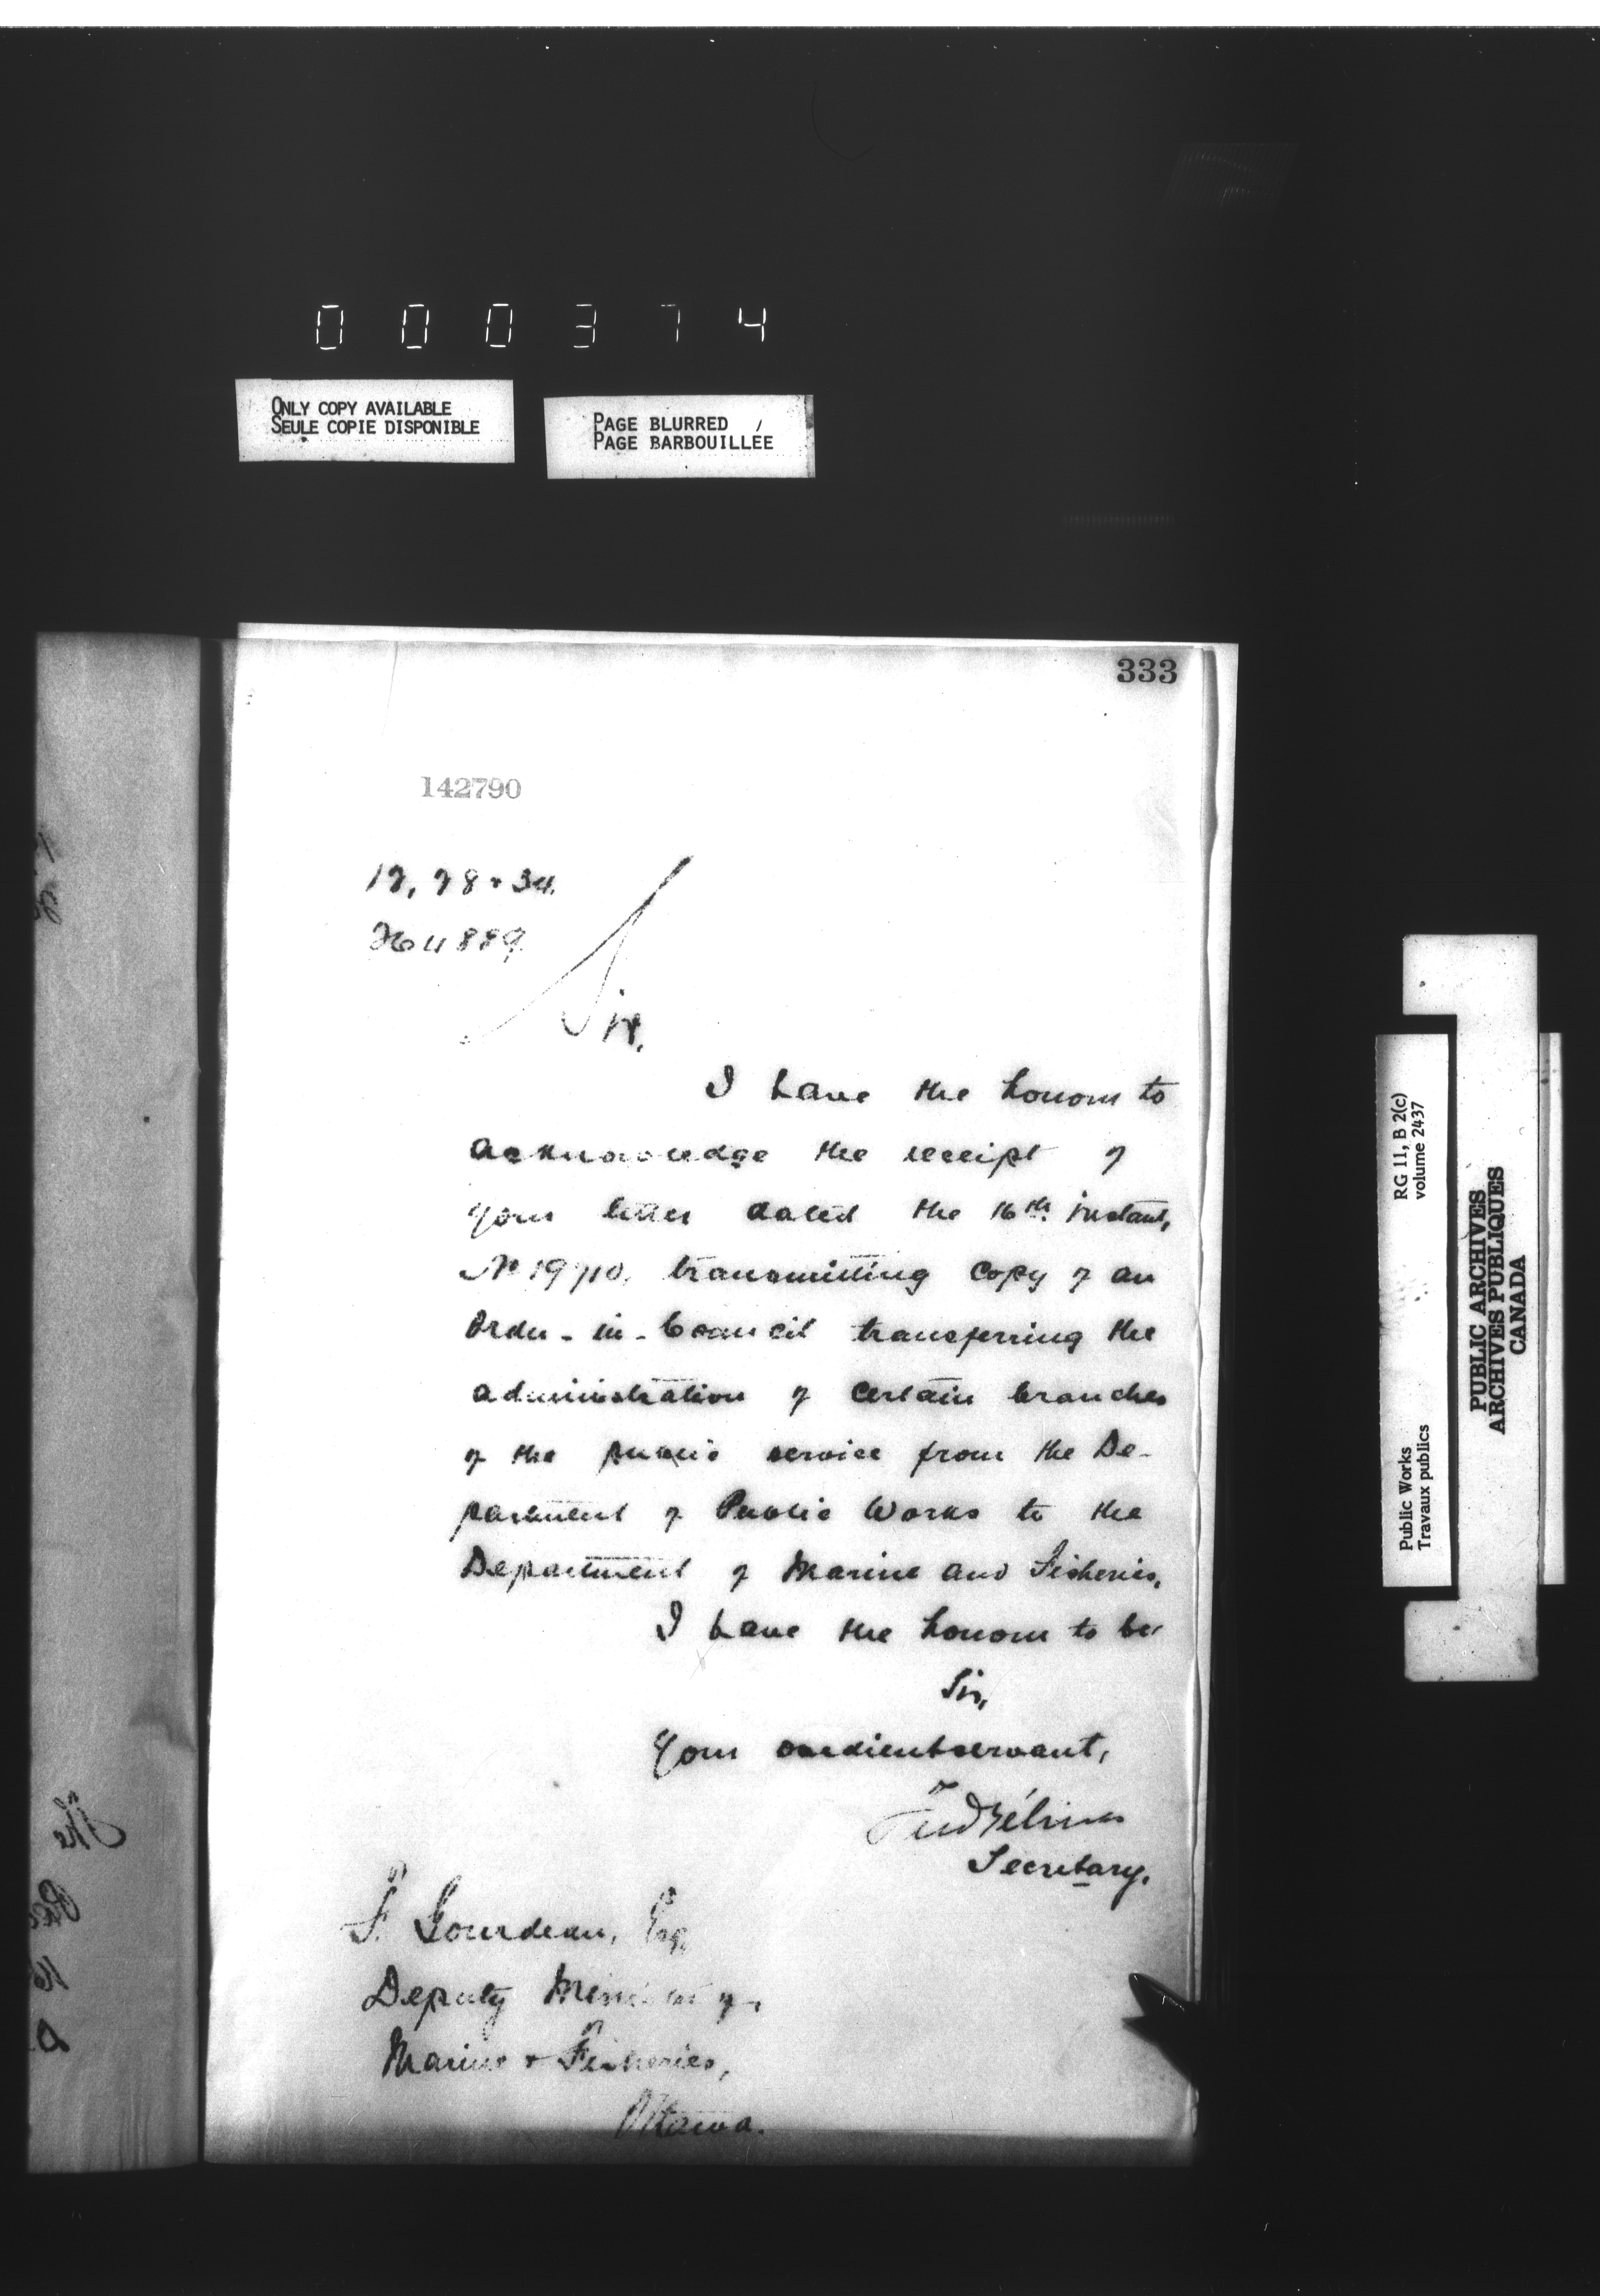 000374
ONLY COPY AVAILABLE
SEULE COPIE DISPONIBLE
PAGE BLURRED
PAGE BARBOUILLÉE
333
142790
Sir,
I have the honour to
acknowledge the receipt of
your letter dated the 16th instant,
transmitting copy of an
Order-in-Council transferring the
administration of certain branches
of the public service from the De-
partment of Public Works to the
Department of Marine and Fisheries.
I have the honour to be
Sir,
Your obedient servant,
Fred Gélinas
Secretary.
F. Gourdeau, Esq.
Deputy Minister of
Marine & Fisheries,
Ottawa.
RG 11, B 2(c)
volume 2437
Public Works
Travaux publics
PUBLIC ARCHIVES
ARCHIVES PUBLIQUES
CANADA